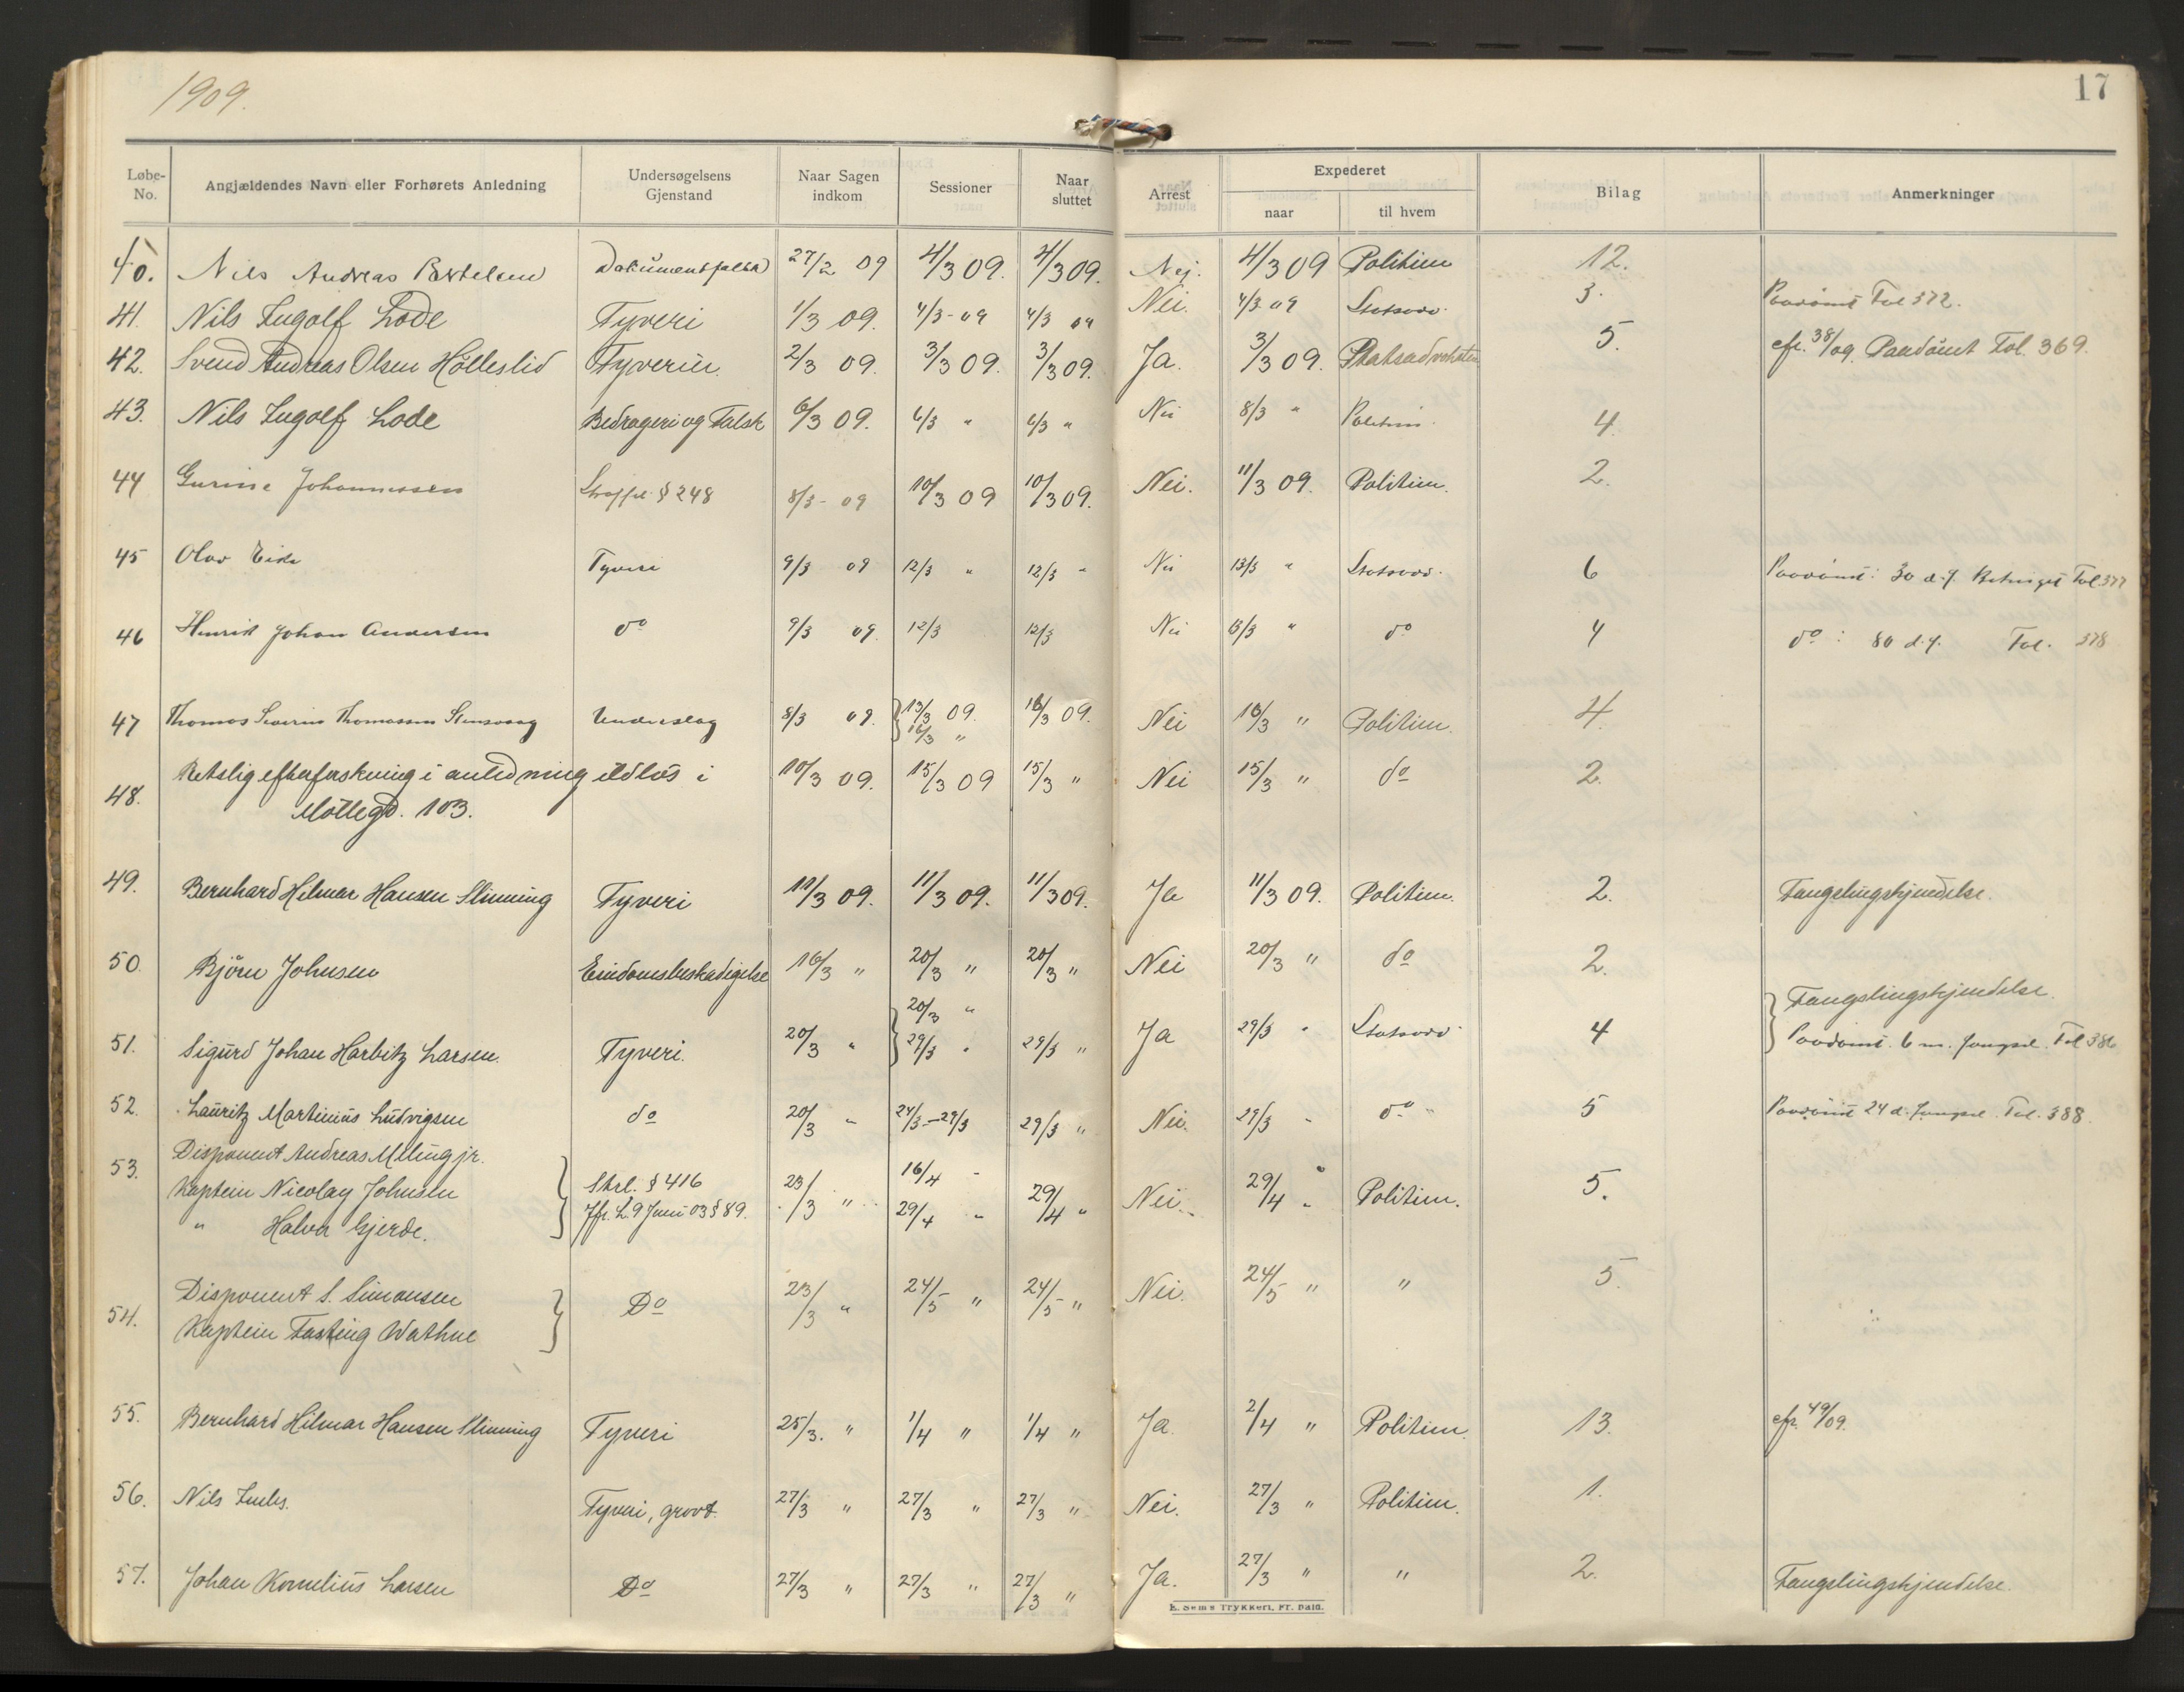 1909.
17
Løbe-No. Angjældendes Navn eller Forhørets Anledning Undersøgelsens Gjenstand Naar Sagen indkom Sessioner Naar sluttet Arrest Expederet naar til hvem Bilag Anmerkninger
40. Nils Andreas Bertelsen Dokumentfalsk 27/2 09 4/3 09. 4/3 09. Nej. 4/3 09 Politien 12.
41. Nils Ingolf Lode Tyveri 1/3 09. 4/3-09 4/3 09 Nei. 4/3 09 Statsadv. 3. Paadömt Fol 372.
42. Svend Andreas Olsen Hölleslid Tyverier 2/3 09. 3/3 09. 3/3 09. Ja. 3/3 09. Statsadvokaten 5. cfr. 38/09. Paadömt Fol. 369.
43. Nils Ingolf Lode Bedrageri og Falsk 6/3 09. 6/3 " 6/3 " Nei 8/3 " Politiet 4.
44 Gurine Johannessen Straffel. § 248 8/3 - 09 10/3 09 10/3 09. Nei. 11/3 09. Politien. 2.
45 Olav Eide Tyveri 9/3 09 12/3 " 12/3 " Nei 13/3 " Statsadv. 6 Paadömt: 30 d. f. Betinget Fol 377
46 Henrik Johan Andersen do 9/3 09. 12/3 12/3 Nei 13/3 " do 4 do : 80 d. f. Fol. 378
47 Thomas Severin Thomassen Stensvaag Underslag 8/3 09. 13/3 09. 16/3 09. Nei 16/3 " Politien. 4.
16/3 "
48. Retslig efterforskning i anledning ildlös i 10/3 09. 15/3 09 15/3 " Nei 15/3 " do 2.
Möllegd. 103.
49. Bernhard Hilmar Hansen Slinning Tyveri 11/3 09. 11/3 09. 11/3 09. Ja 11/3 09. Politien. 2. Fangslingskjendelse.
50. Björn Johnsen Eiendomsbeskadigelse 16/3 " 20/3 " 20/3 " Nei 20/3 " do 2.
20/3 " Fangslingskjendelse.
51. Sigurd Johan Harbitz Larsen. Tyveri. 20/3 " 29/3 " 29/3 " Ja 29/3 " Statsadv. 4 Paadömt. 6 m. fængsel. Fol 386
52. Lauritz Martinius Ludvigsen do 20/3 " 24/3-29/3 29/3 " Nei. 29/3 " do " 5 Paadömt 24 d. fængsel. Fol. 388.
Disponent Andreas Meling jr.
53. Kaptein Nicolay Johnsen Strl. § 416 23/3 " 16/4 " 29/4 " Nei. 29/4 " Politien. 5.
" Halvor Gjerde. Jfr. L. 9 Juni 03 § 89. 29/4 "
Disponent S. Simonsen
54. Do 23/3 " 24/5 " 24/5 " Nei. 24/5 " " 5.
Kaptein Fasting Wathne
55. Bernhard Hilmar Hansen Slinning Tyveri 25/3. " 1/4 " 1/4 " Ja. 2/4 " Politien. 13. cfr. 49/09.
56. Nils Tyveri, grovt. 27/3 " 27/3 " 27/3 " Nei. 27/3 " Politien. 1.
57. Johan Kornelius Larsen Do 27/3 " 27/3 " 27/3 " Ja. 27/3 " " 2. Fangslingskjendelse.
E. Sem's Trykkeri, Fr. Hald.